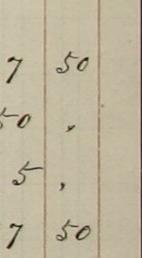 7 50
50 "
5 "
7 50